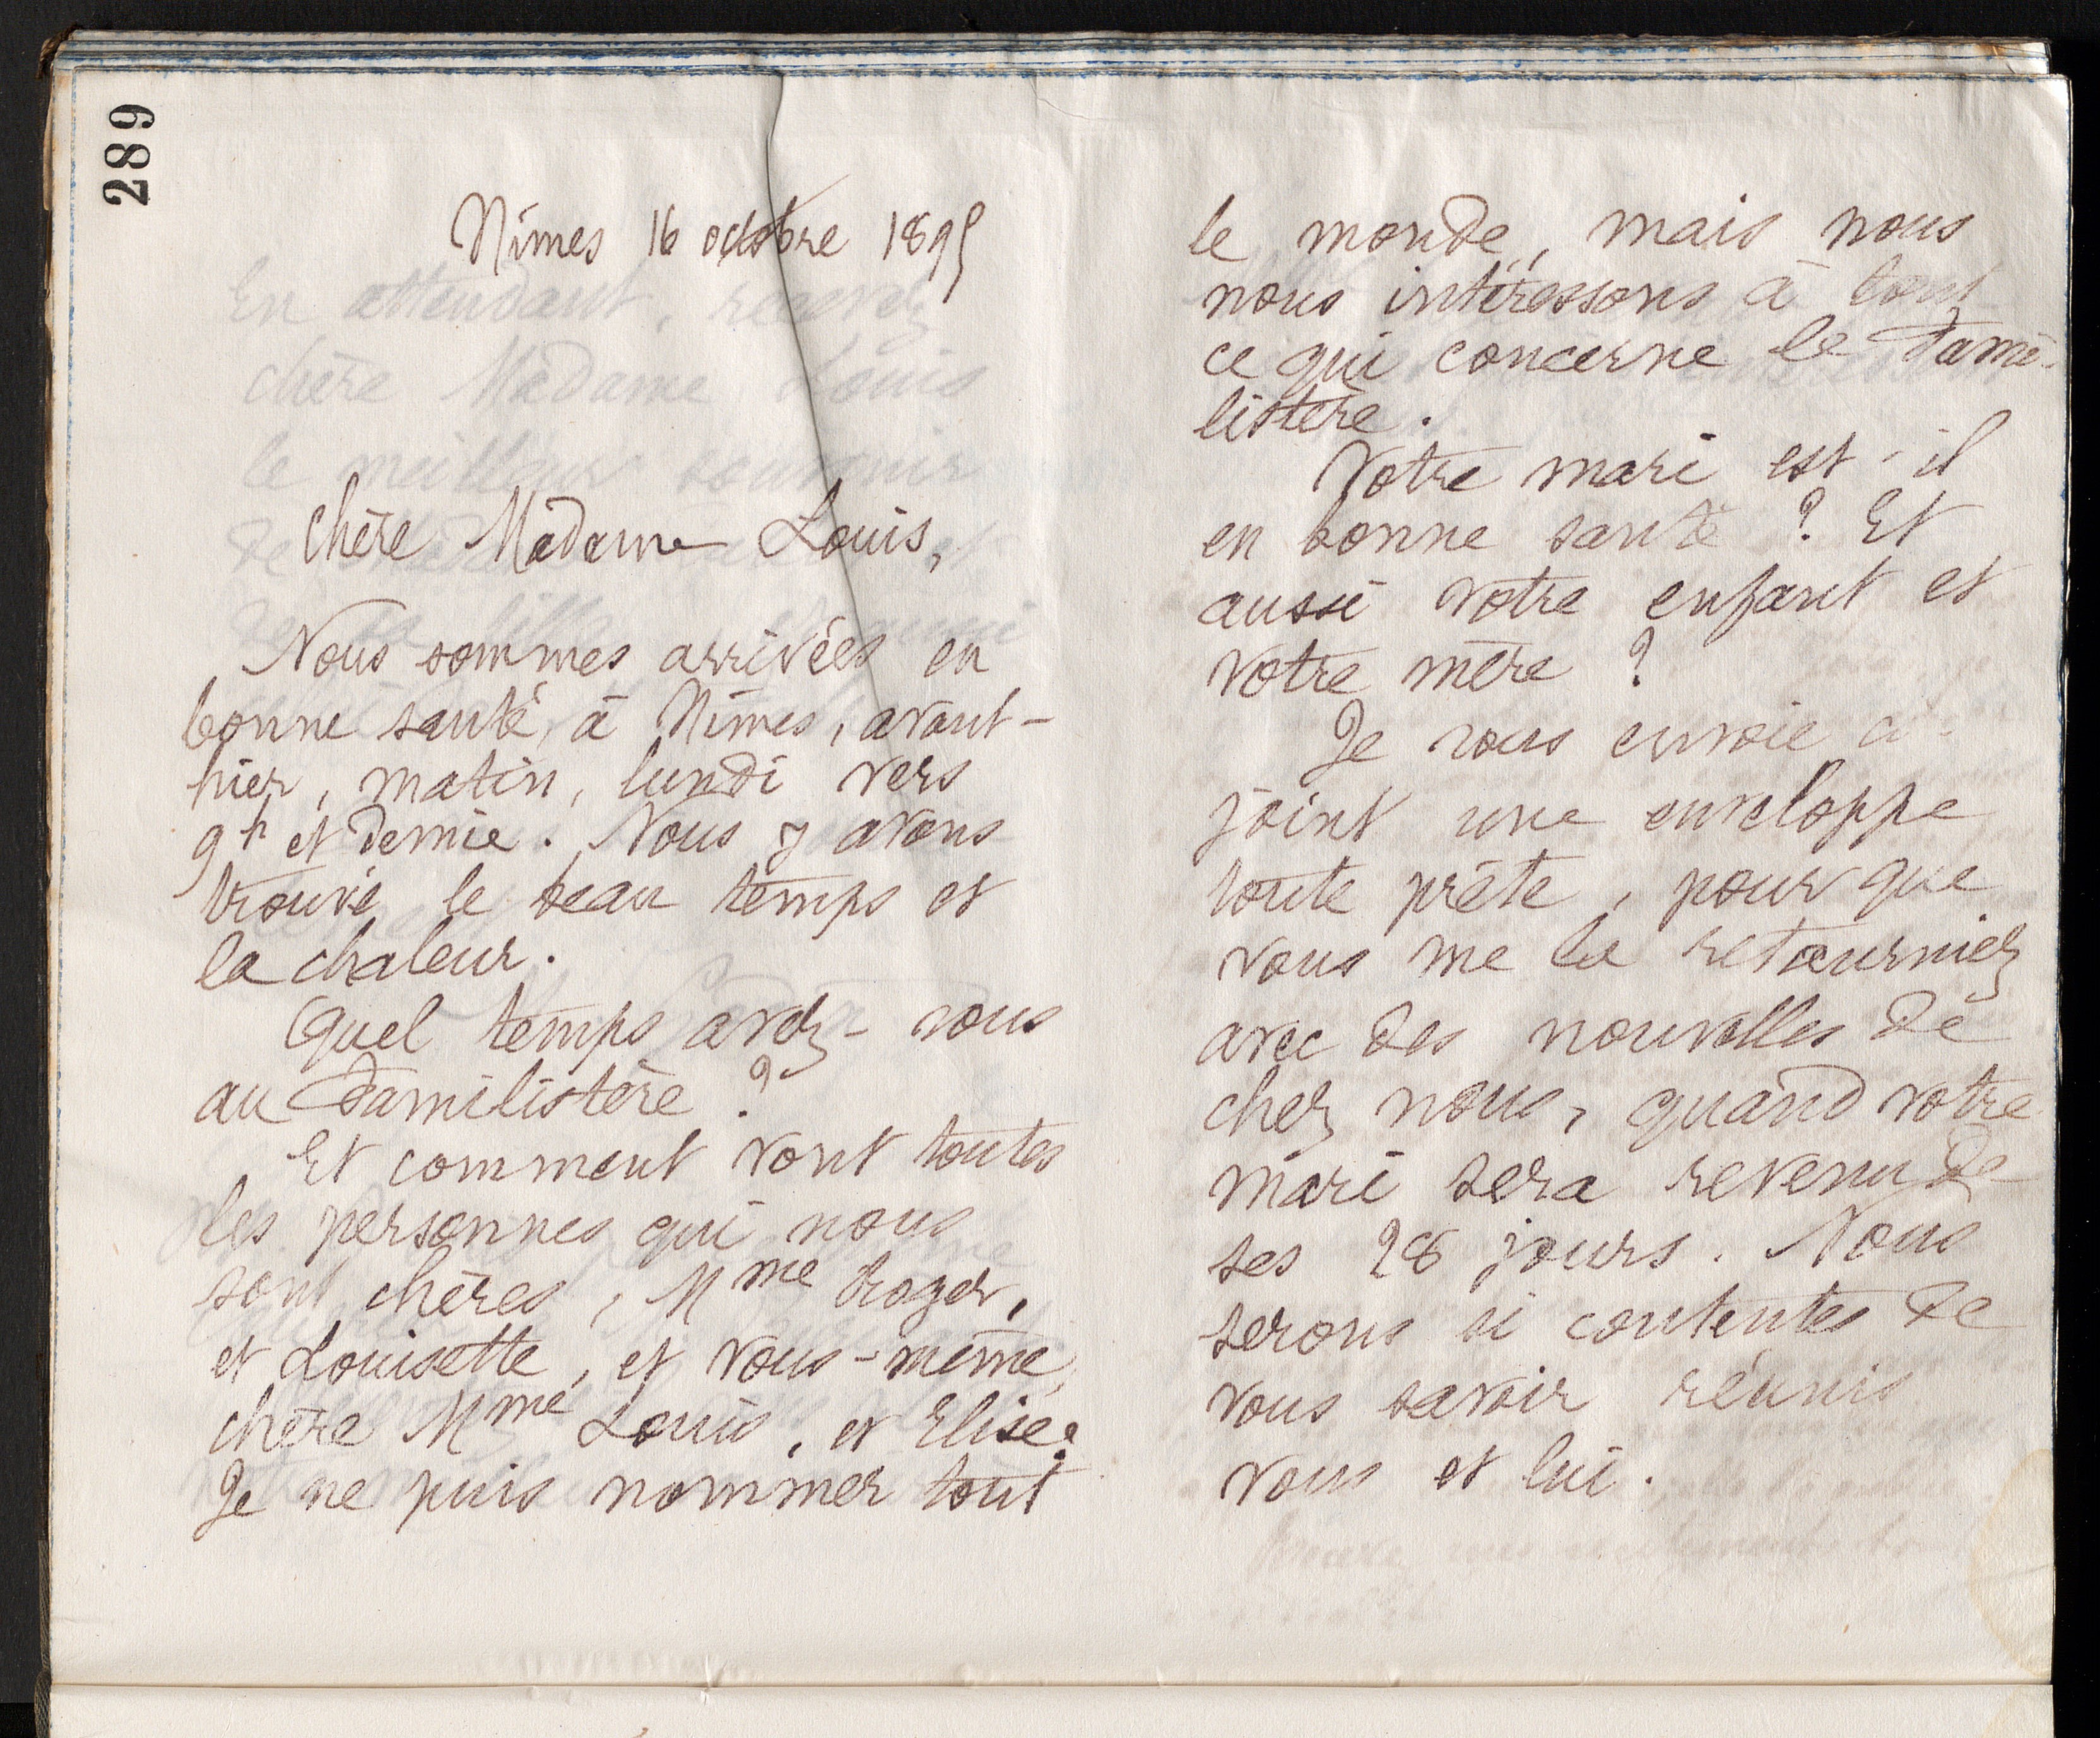 289
Nîmes 16 octobre 1895
Chère Madame Louis,
Nous sommes arrivées en
bonne santé, à Nîmes, avant-
hier, matin, lundi vers
9h et demie. Nous y avons
trouvé le beau temps et
la chaleur.
Quel temps avez-vous
au Familistère ?
Et comment vont toutes
les personnes qui nous
sont chères, Mme Roger,
et Louisette, et vous-même,
chère Mme Louis, et Elise ?
Je ne puis nommer tout
le monde, mais nous
nous intéressons à tout
ce qui concerne le Fami-
listère.
Votre mari est-il
en bonne santé ? Et
aussi votre enfant et
votre mère ?
Je vous envoie ci-
joint une enveloppe
toute prête, pour que
vous me la retourniez
avec des nouvelles de
chez nous, quand votre
mari sera revenu de
ses 28 jours. Nous
serons si contentes de
vous savoir réunis
vous et lui.